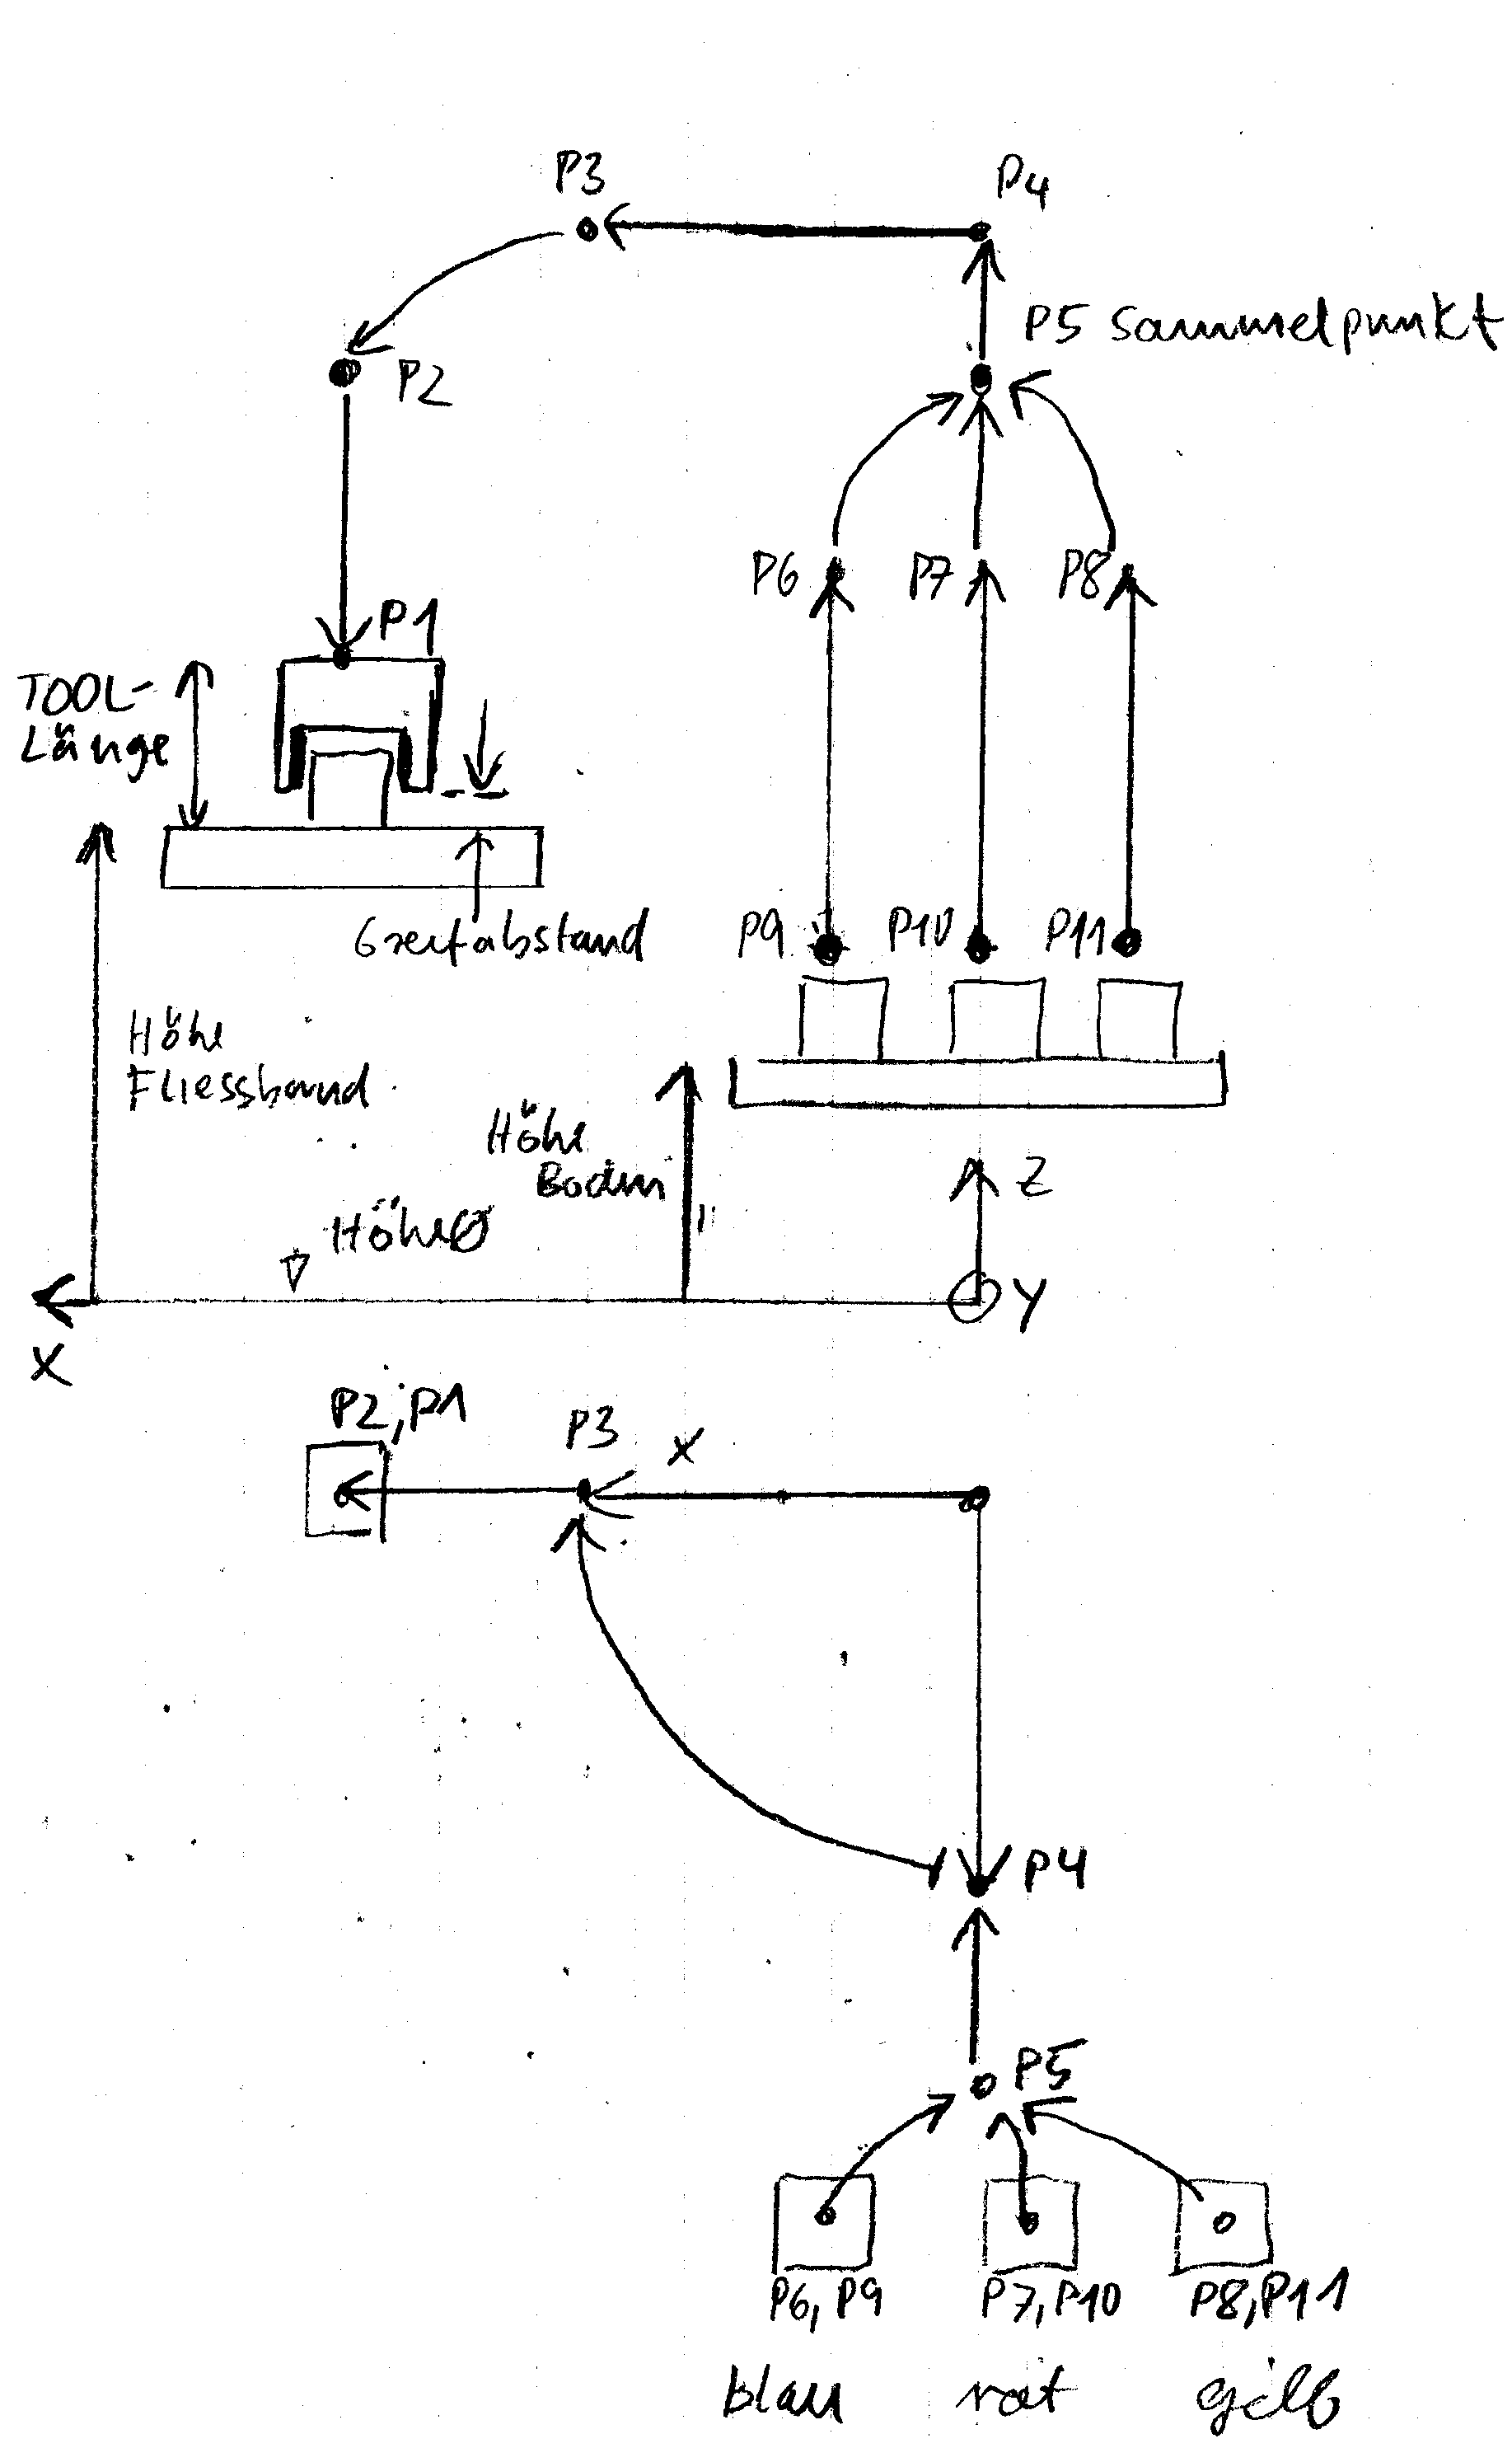 P3
P4
P5 Sammelpunkt
P2
P6 P7 P8
P1
TOOL-
Länge
P9 P10 P11
Greifabstand
Höhe
Fliessband
Höhe
Boden
Z
Höhe0
Y
X
P2, P1
P3
X
P4
P5
P6, P9 P7, P10 P8, P11
blau rot gelb